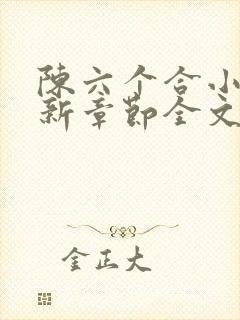 陈六个合小
新章节全文
金正大